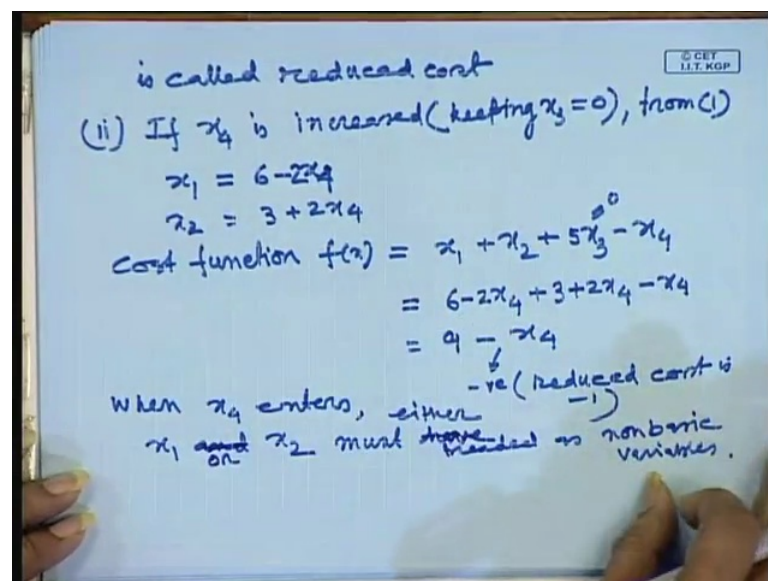 is called reduced cost
© CET
I.I.T. KGP
(ii) If x₄ is increased (keeping x₃ = 0), from (1)
x₁ = 6 - 2x₄
x₂ = 3 + 2x₄
cost function f(x) = x₁ + x₂ + 5x₃ - x₄
0
= 6 - 2x₄ + 3 + 2x₄ - x₄
= 9 - x₄
-ve (reduced cost is
-1)
When x₄ enters, either
x₁ or x₂ must treaded as nonbasic
variables.